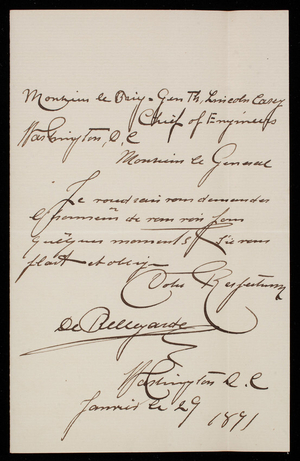 Monsieur le Brig-Gen Th, Lincoln Casey
Chief of Engineers
Washington, D.C
Monsieur le General
Je voudrais vous demander
l'honneur de vous voir pour
quelques moments s'il vous
plait et oblige
Votre Respectueux
De Bellegarde
Washington D.C
Janvier le 29
1891